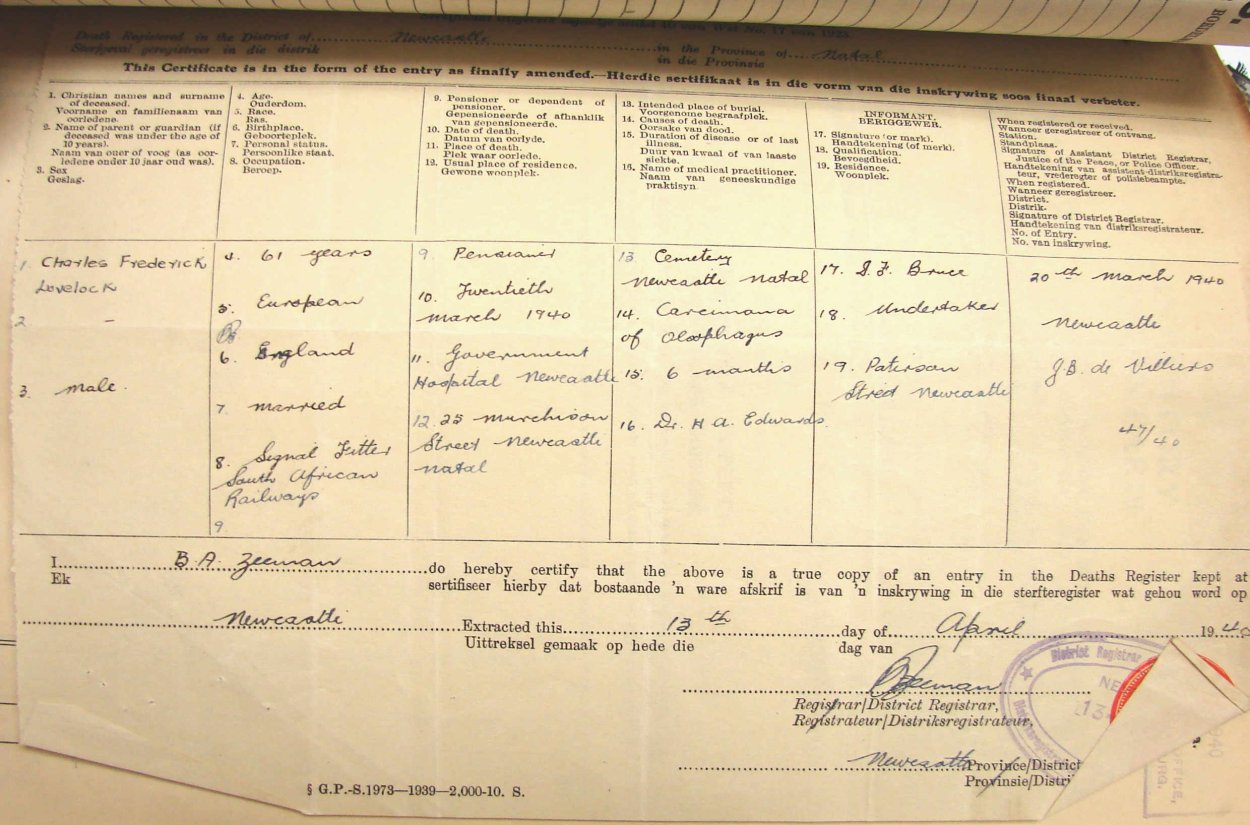 No. 17 van 1923.
Death Registered in the District of Newcastle in the Province of Natal
Sterfgeval geregistreer in die distrik in die Provinsie
This Certificate is in the form of the entry as finally amended.—Hierdie sertifikaat is in die vorm van die inskrywing soos finaal verbeter.
1. Christian names and surname
of deceased.
Voorname en familienaam van
oorledene.
2. Name of parent or guardian (if
deceased was under the age of
10 years).
Naam van ouer of voog (as oor-
ledene onder 10 jaar oud was).
3. Sex
Geslag.
4. Age.
Ouderdom.
5. Race.
Ras.
6. Birthplace.
Geboorteplek.
7. Personal status.
Persoonlike staat.
8. Occupation.
Beroep.
9. Pensioner or dependent of
pensioner.
Gepensioneerde of afhanklik
van gepensioneerde.
10. Date of death.
Datum van oorlyde.
11. Place of death.
Plek waar oorlede.
12. Usual place of residence.
Gewone woonplek.
13. Intended place of burial.
Voorgenome begraafplek.
14. Causes of death.
Oorsake van dood.
15. Duration of disease or of last
illness.
Duur van kwaal of van laaste
siekte.
16. Name of medical practitioner.
Naam van geneeskundige
praktisyn.
INFORMANT.
BERIGGEWER.
17. Signature (or mark).
Handtekening (of merk).
18. Qualification.
Bevoegdheid.
19. Residence.
Woonplek.
When registered or received.
Wanneer geregistreer of ontvang.
Station.
Standplaas.
Signature of Assistant District Registrar,
Justice of the Peace, or Police Officer.
Handtekening van assistent-distriksregistra-
teur, vrederegter of polisiebeampte.
When registered.
Wanneer geregistreer.
District.
Distrik.
Signature of District Registrar.
Handtekening van distriksregistrateur.
No. of Entry.
No. van inskrywing.
1. Charles Frederick
Lovelock
2 —
3. Male.
4. 61 years
5. European
6. England
7. Married
8. Signal Fitter
South African
Railways
9.
9. Pensioner
10. Twentieth
March 1940
11. Government
Hospital Newcastle
12. 25 Murchison
Street Newcastle
Natal
13 Cemetery
Newcastle Natal
14. Carcinoma
of Oesophagus
15. 6 months
16. Dr. H A. Edwards.
17. S. F. Bruce
18. Undertaker
19. Paterson
Street Newcastle
20th March 1940
Newcastle
J.B. de Villiers
47/40
I B. A. Zeeman do hereby certify that the above is a true copy of an entry in the Deaths Register kept at
Ek sertifiseer hierby dat bostaande 'n ware afskrif is van 'n inskrywing in die sterfteregister wat gehou word op
Newcastle Extracted this 13th day of April 1940
Uittreksel gemaak op hede die dag van
BZeeman
Registrar/District Registrar,
Registrateur/Distriksregistrateur,
Newcastle Province/District
Provinsie/Distri
§ G.P.-S.1973—1939—2,000-10. S.
District Registrar
NE
13
1940
OFFICE,
URG.